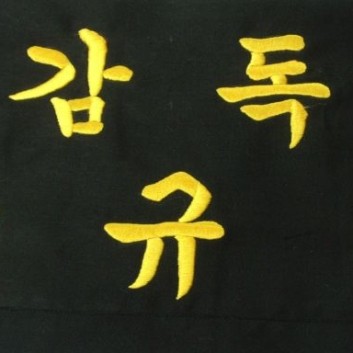 감독
규